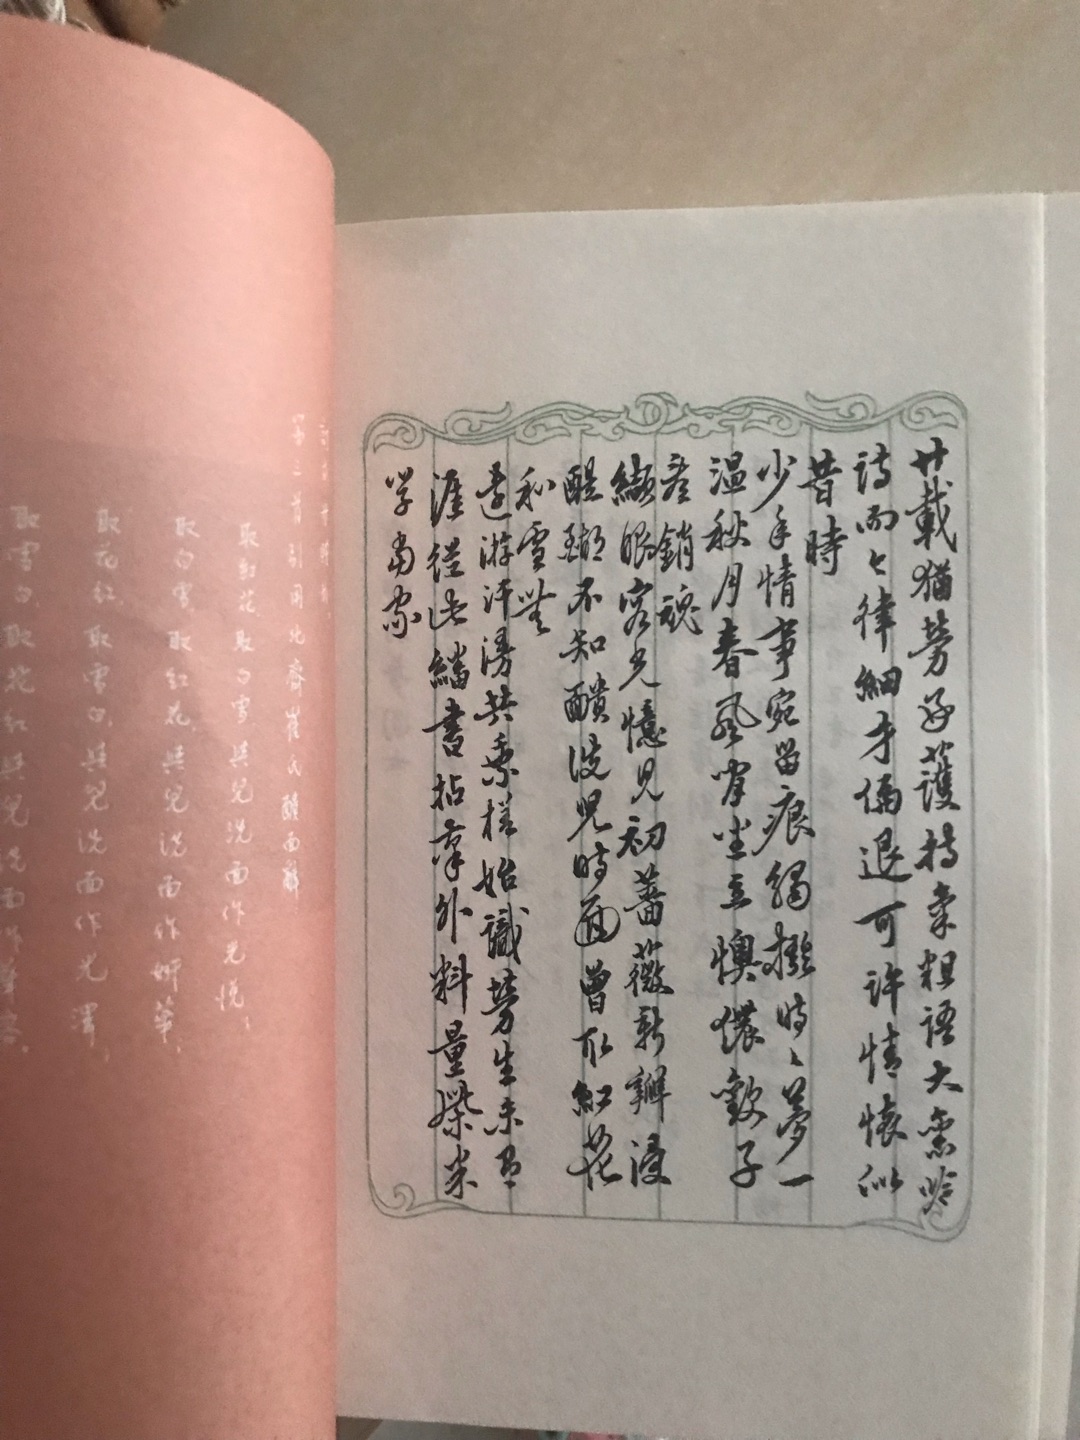 廿載猶勞護持粗語大吟
詩而今律細才偏退可許情懷似
昔時
少年情事宛留痕觸撥時時夢一
溫秋月春風肯坐立懊儂歡子
銷魂
纈眼容光憶見初薔薇新瓣浸
醍醐不知靧汝兒時面曾取紅花
和雪無
遠游汗漫共乘槎始識勞生未有
涯從此繙書拈筆外料量柴米
學當家
第三首引用北齊崔氏靧面辭
取紅花，取白雪，與兒洗面作光悅；
取白雪，取紅花，與兒洗面作妍華；
取花紅，取雪白，與兒洗面作光澤；
取雪白，取花紅，與兒洗面作華容。